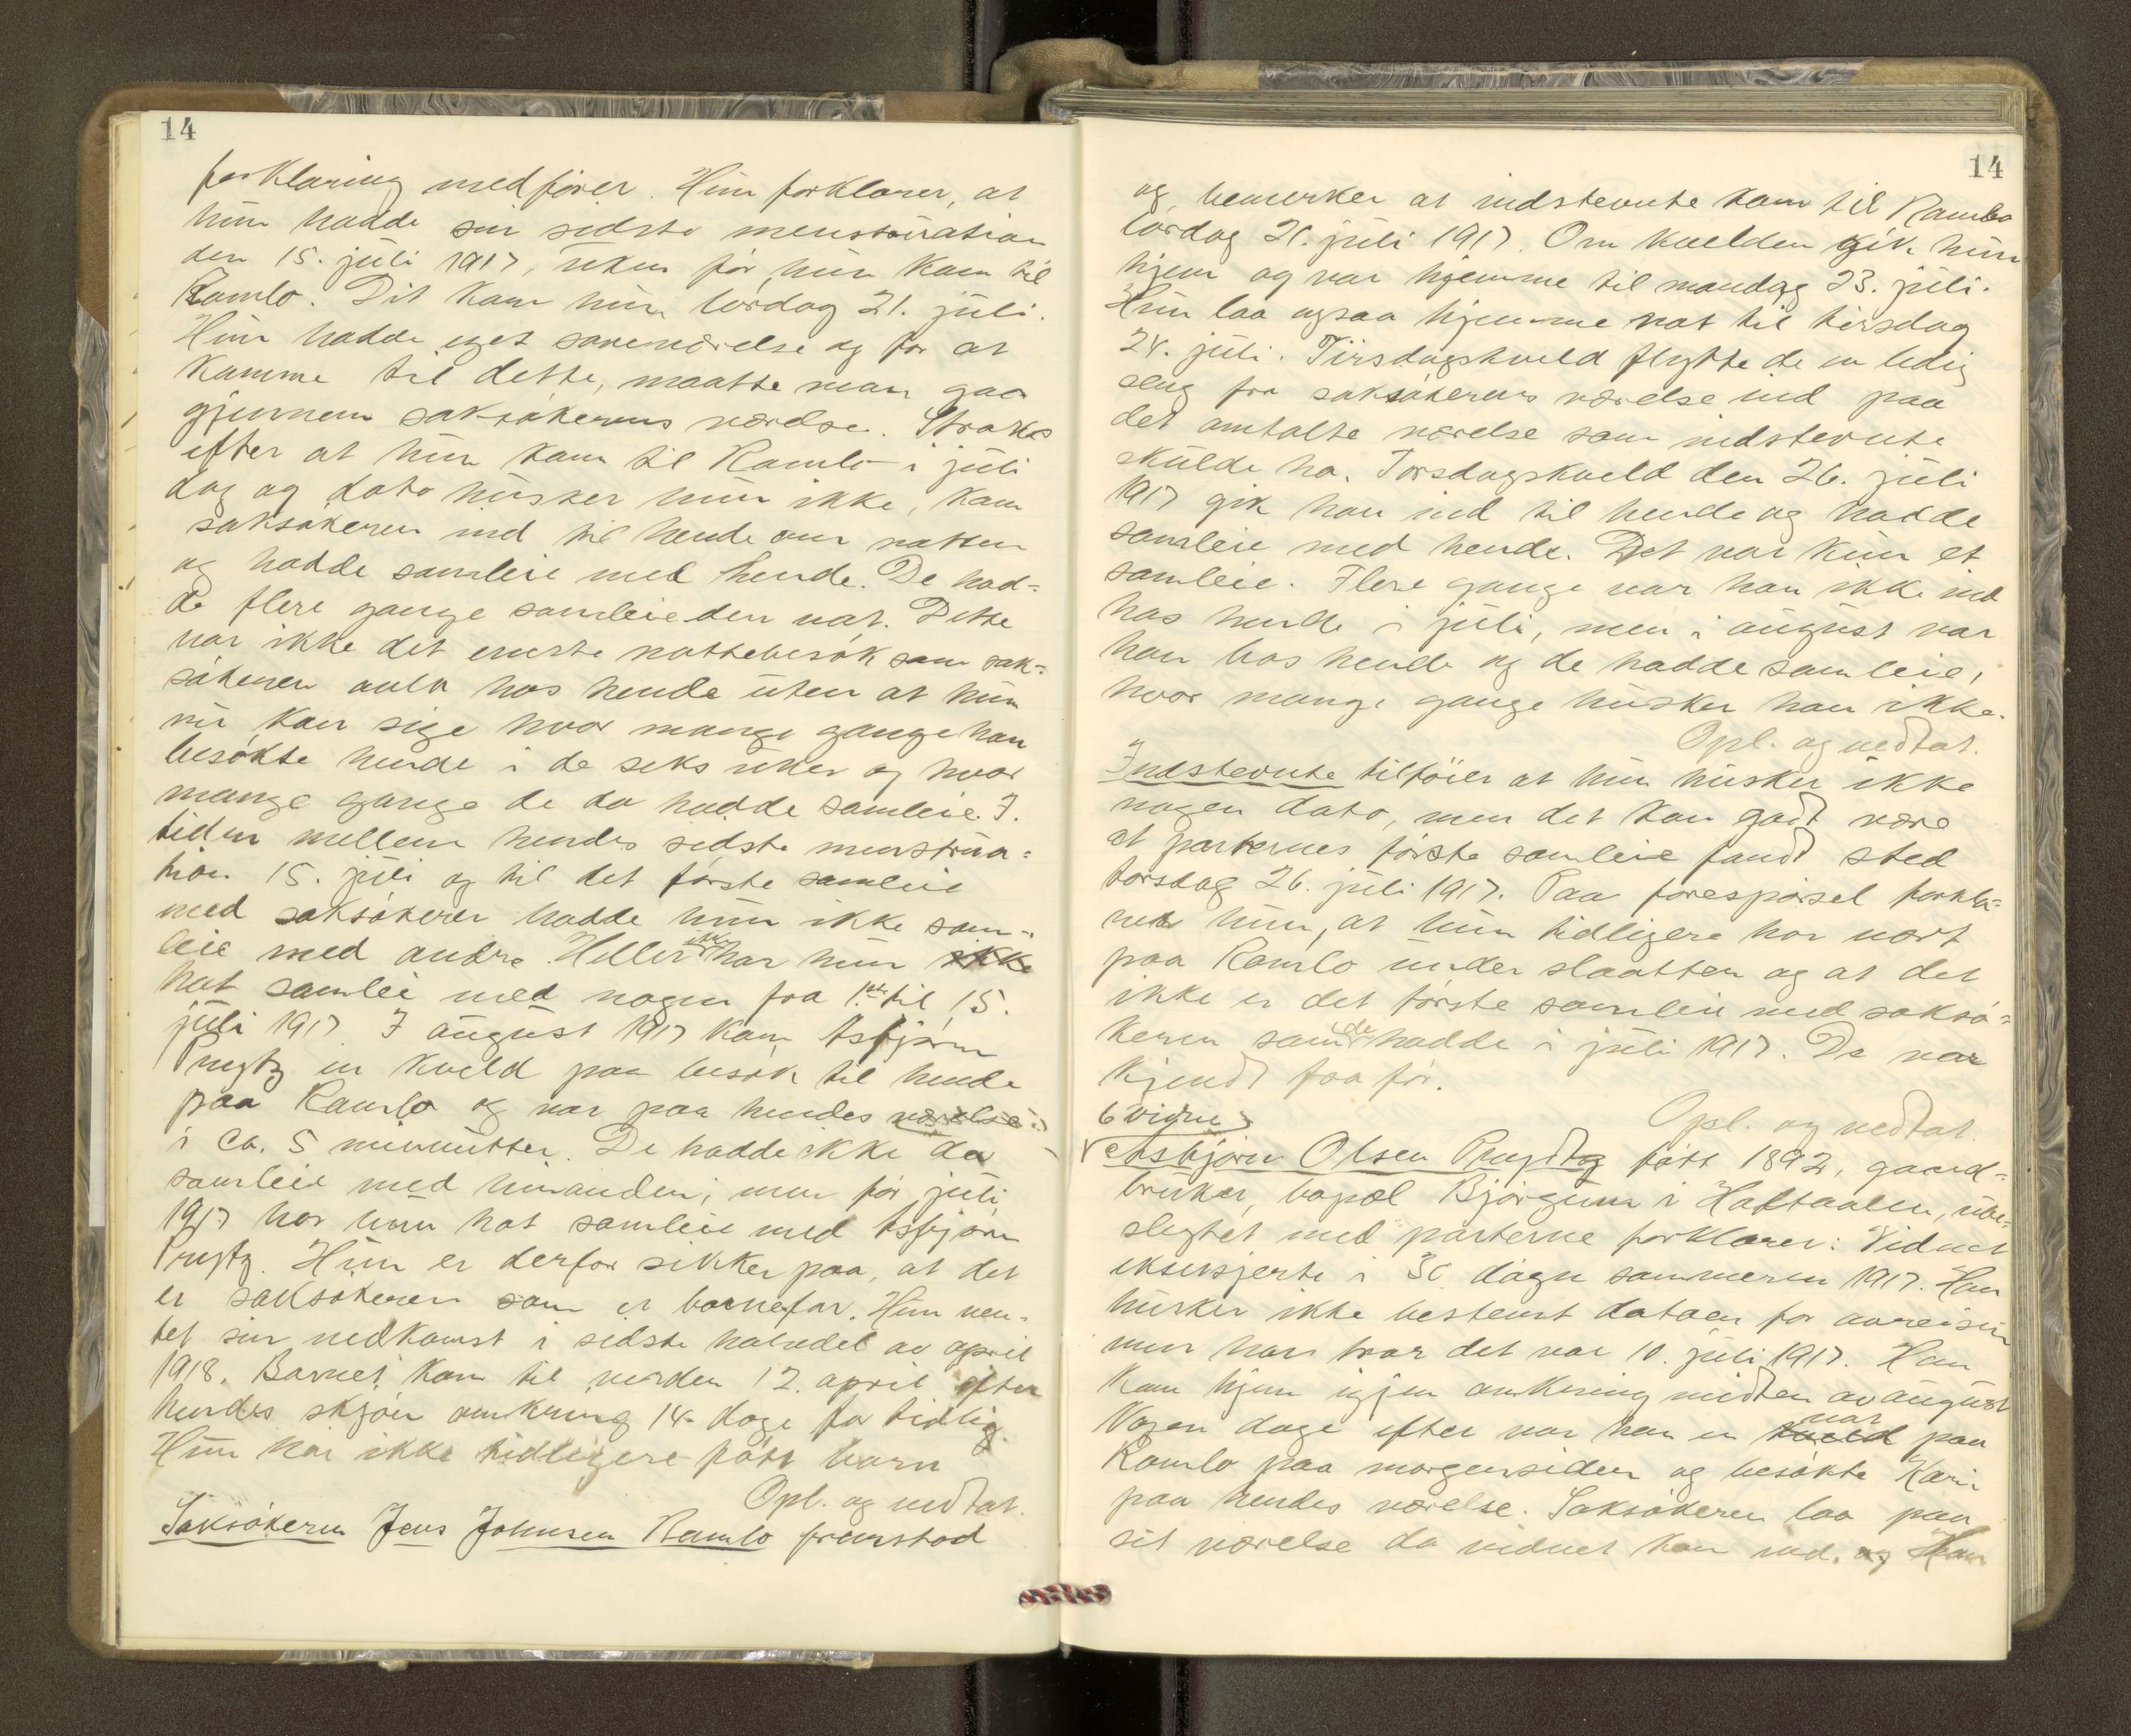 14
forklaring medfører. Hun forklarer, at
hun hadde sin sidste menstruation
den 15. juli 1917, uken før hun kom til
Ramlo. Dit kom hun lørdag 21. juli.
Hun hadde eget soveværelse og for at
komme til dette, maatte man gaa
gjennem saksøkerens værelse. Straks
efter at hun kom til Ramlo i juli
dag og dato husker hun ikke, kom
saksøkeren ind til hende om natten
og hadde samleie med hende. De had-
de flere gange samleie den nat. Dette
var ikke det eneste nattebesøk som sak-
søkeren avla hos hende uten at hun
nu kan sige hvor mange gange han
besøkte hende i de seks uker og hvor
mange gange de da hadde samleie. I
tiden mellem hendes sidste menstrua-
tion 15. juli og til det første samleie
med saksøkeren hadde hun ikke sam-
leie med andre. Heller ikke har hun ikke
hat samleie med nogen fra 1ste til 15.
juli 1917. I august 1917 kom Asbjørn
Prytz en kveld paa besøk til hende
paa Ramlo og var paa hendes værelse
i ca. 5 minutter. De hadde ikke da
samleie med hinanden; men før juli
1917 har hun hat samleie med Asbjørn
Prytz. Hun er derfor sikker paa, at det
er saksøkeren som er barnefar. Hun ven-
tet sin nedkomst i sidste halvdel av april
1918. Barnet kom til verden 12. april efter
hendes skjøn omkring 14 dage for tidlig.
Hun har ikke tidligere født barn
Opl. og vedtat.
Saksøkeren Jens Johnsen Ramlo fremstod
14
og bemerker at indstevnte kom til Ramlo
lørdag 21. juli 1917. Om kvelden gik hun
hjem og var hjemme til mandag 23. juli.
Hun laa ogsaa hjemme nat til tirsdag
24. juli. Tirsdagskveld flytte de en ledig
seng fra saksøkerens værelse ind paa
det omtalte værelse som indstevnte
skulde ha. Torsdagskveld den 26. juli
1917 gik han ind til hende og hadde
samleie med hende. Det var kun et
samleie. Flere gange var han ikke ind
hos hende i juli, men i august var
han hos hende og de hadde samleie,
hvor mange gange husker han ikke.
Opl. og vedtat.
Indstevnte tilføier at hun husker ikke
nogen dato, men det kan godt være
at parternes første samleie fandt sted
torsdag 26. juli 1917. Paa forespørsel forkla-
rer hun, at hun tidligere har vært
paa Ramlo under slaatten og at det
ikke er det første samleie med saksø-
keren som de hadde i juli 1917. De var
kjendt fra før.
Opl. og vedtat.
6 vidne
Asbjørn Olsen Prydtz født 1892, gaard-
bruker, bopæl Bjørgum i Haltdalen, ube-
slegtet med parterne forklarer: Vidnet
eksersjerte i 30 døgn sommeren 1917. Han
husker ikke bestemt datoen for avreisen
men han tror det var 10. juli 1917. Han
kom hjem igjen omkring midten av august
Nogen dage efter var han en kveld nat paa
Ramlo paa morgensiden og besøkte Kari
paa hendes værelse. Saksøkeren laa paa
sit værelse da vidnet kom ind. og Han